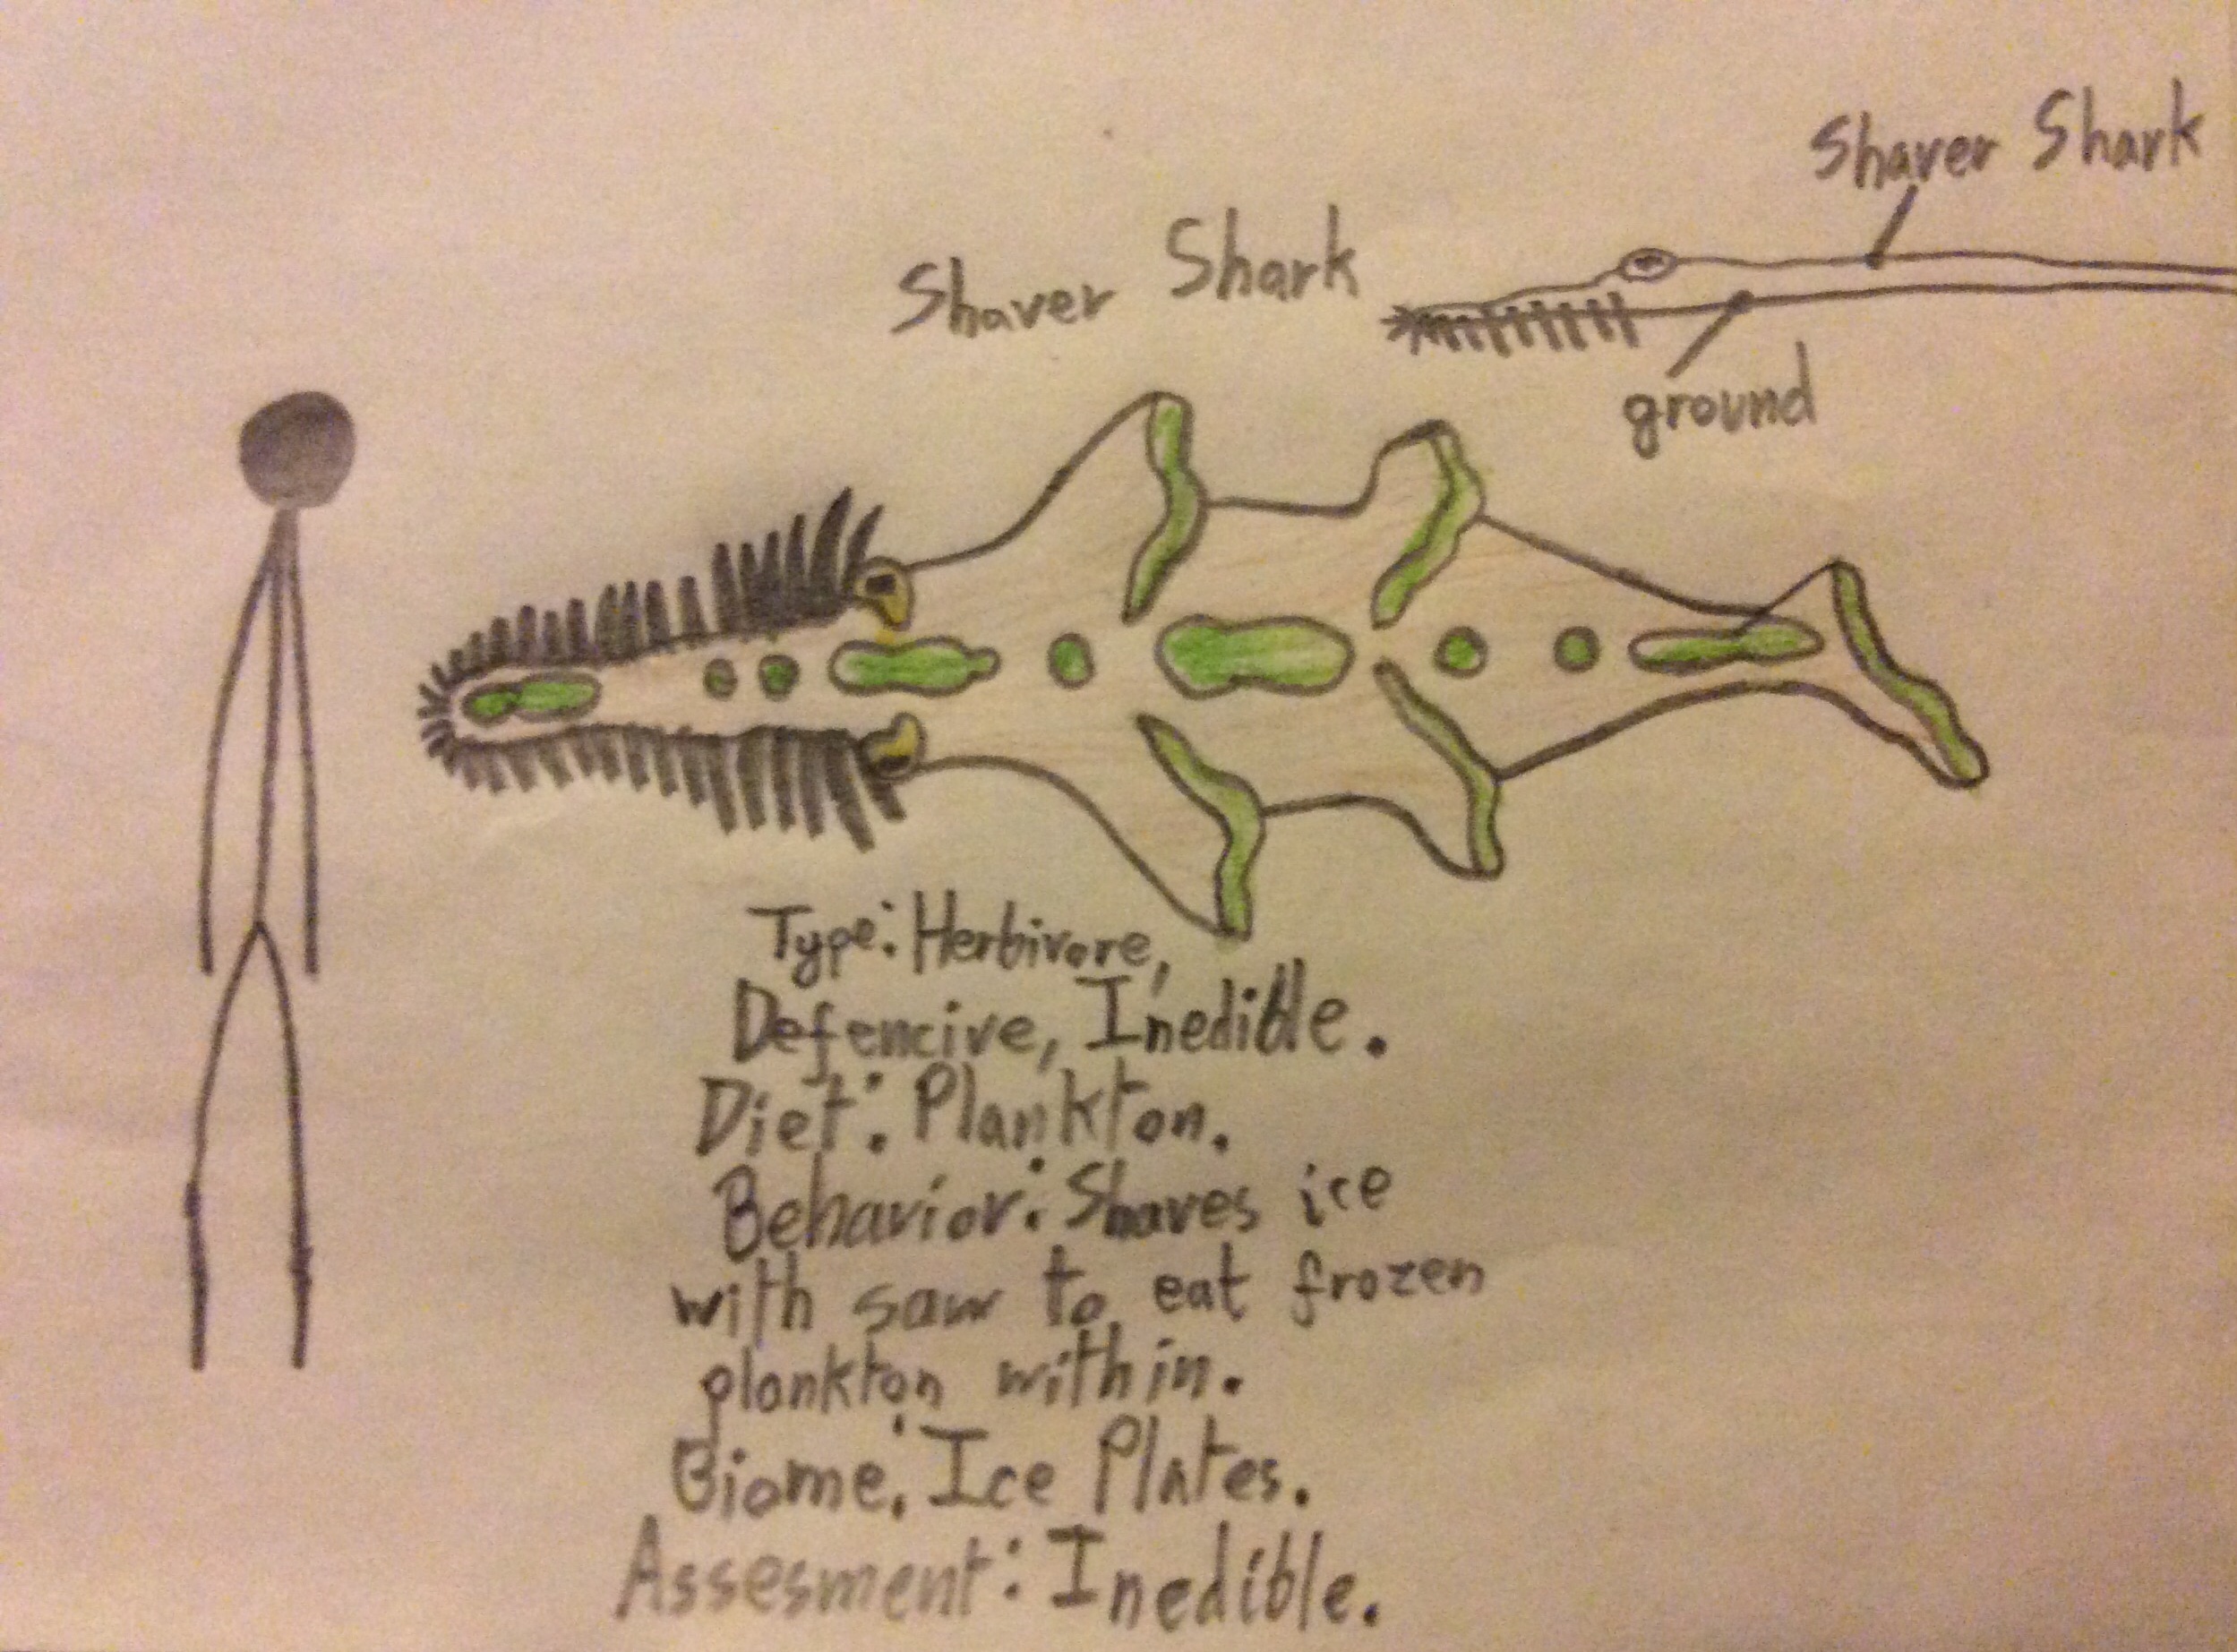 Shaver Shark
Shaver Shark
ground
Type: Herbivore,
Defencive, Inedible.
Diet: Plankton.
Behavior: Shaves ice
with saw to eat frozen
plankton within.
Biome: Ice Plates.
Assesment: Inedible.